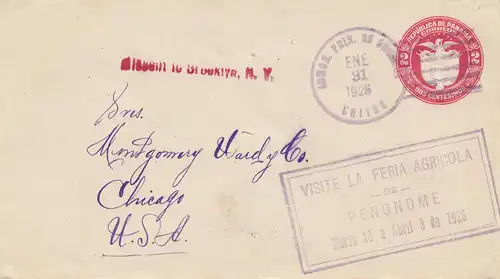 REPUBLICA DE PANAMA
CORREOS
2 2
DOS CENTESIMOS
ENE
31
1926
CHITRE
Missent to Brooklyn, N. Y.
Sres.
Montgomery Ward y Co.
Chicago
U.S.A.
VISITE LA FERIA AGRICOLA
DE
PENONOME
Marzo 28 a Abril 3 de 1926